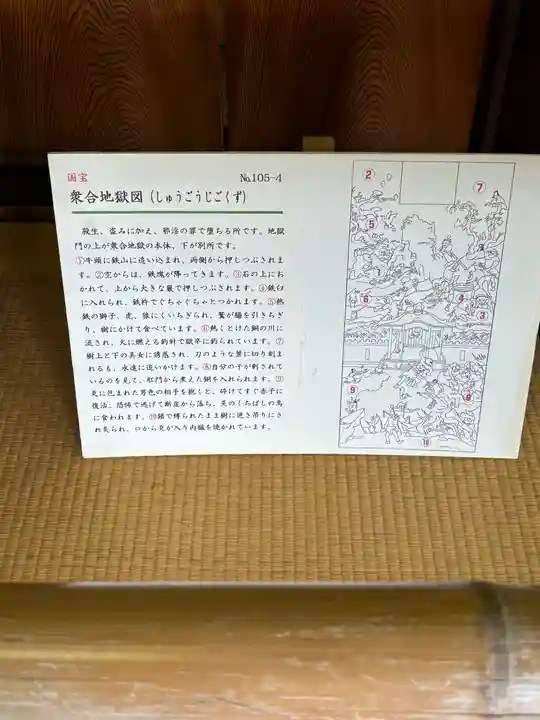 国宝
No.105-4
衆合地獄図(しゅうごうじごくず)
殺生、盗みに加え、邪淫の罪で堕ちる所です。地獄
門の上が衆合地獄の本体、下が別所です。
①牛頭に鉄山に追い込まれ、両側から押しつぶされま
す。②空からは、鉄塊が降ってきます。③石の上にお
かれて、上から大きな巌で押しつぶされます。④鉄臼
に入れられ、鉄杵でぐちゃぐちゃとつかれます。⑤熱
鉄の獅子、虎、狼にくいちぎられ、鷲が腸を引きちぎ
り、樹にかけて食べています。⑥熱くとけた銅の川に
流され、火に燃える釣針で獄卒に釣られています。⑦
樹上と下の美女に誘惑され、刀のような葉に切り刻ま
れるも、永遠に追いかけます。⑧自分の子が刺されて
いるのを見て、肛門から煮えた銅を入れられます。⑨
炎に包まれた男色の相手を抱くと、砕けてすぐ赤子に
復活。恐怖で逃げて断崖から落ち、炎のくちばしの鳥
に食われます。⑩頭で縛られたまま樹に逆さ吊りにさ
れ炙られ、口から炎が入り内臓を焼かれています。
②
⑦
⑤
①
⑥
④
③
⑨
⑧
⑩